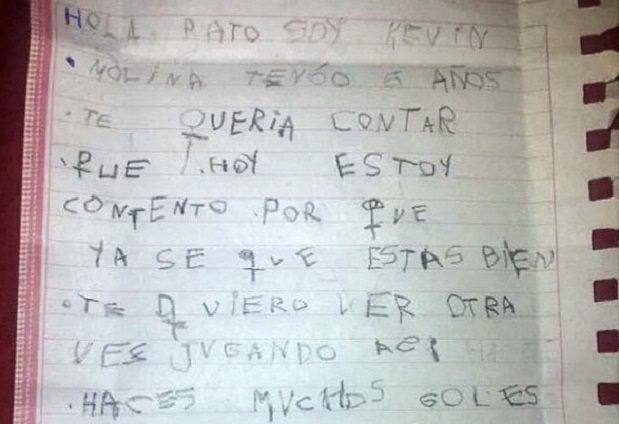 HOLA PATO SOY KEVIN
· MOLINA TENGO 6 AÑOS
· TE QUERIA CONTAR
· QUE HOY ESTOY
CONTENTO POR QUE
YA SE QUE ESTAS BIEN
· TE QUIERO VER OTRA
VES JUGANDO ACI
· HACES MUCHOS GOLES